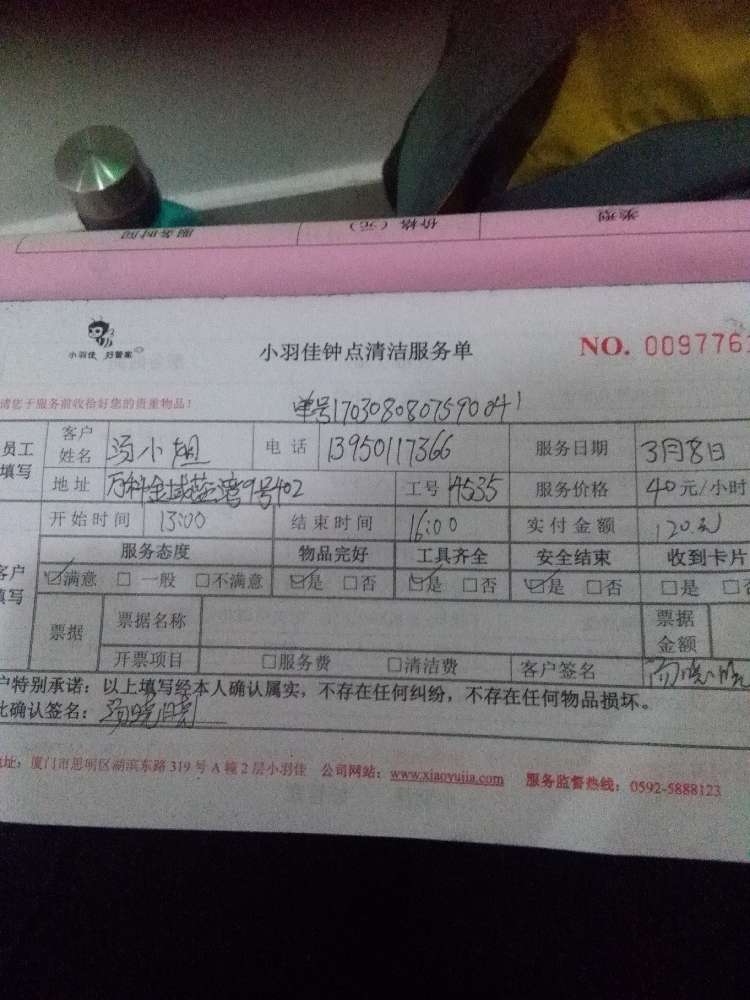 服务时间 价格（元） 类型
小羽佳 好管家
小羽佳钟点清洁服务单 NO. 0097761
请您于服务前收拾好您的贵重物品！
单号1703080807590041
员工填写 客户姓名 冯小姐 电话 13950117366 服务日期 3月8日
地址 万科金域蓝湾9号402 工号 A535 服务价格 40元/小时
开始时间 13:00 结束时间 16:00 实付金额 120元
服务态度 物品完好 工具齐全 安全结束 收到卡片
客户填写 ☑满意 □一般 □不满意 ☑是 □否 ☑是 □否 ☑是 □否 □是 □否
票据 票据名称 票据金额
开票项目 □服务费 □清洁费 客户签名
客户特别承诺：以上填写经本人确认属实，不存在任何纠纷，不存在任何物品损坏。
此确认签名：
地址：厦门市思明区湖滨东路319号A幢2层小羽佳 公司网站：www.xiaoyujia.com 服务监督热线：0592-5888123